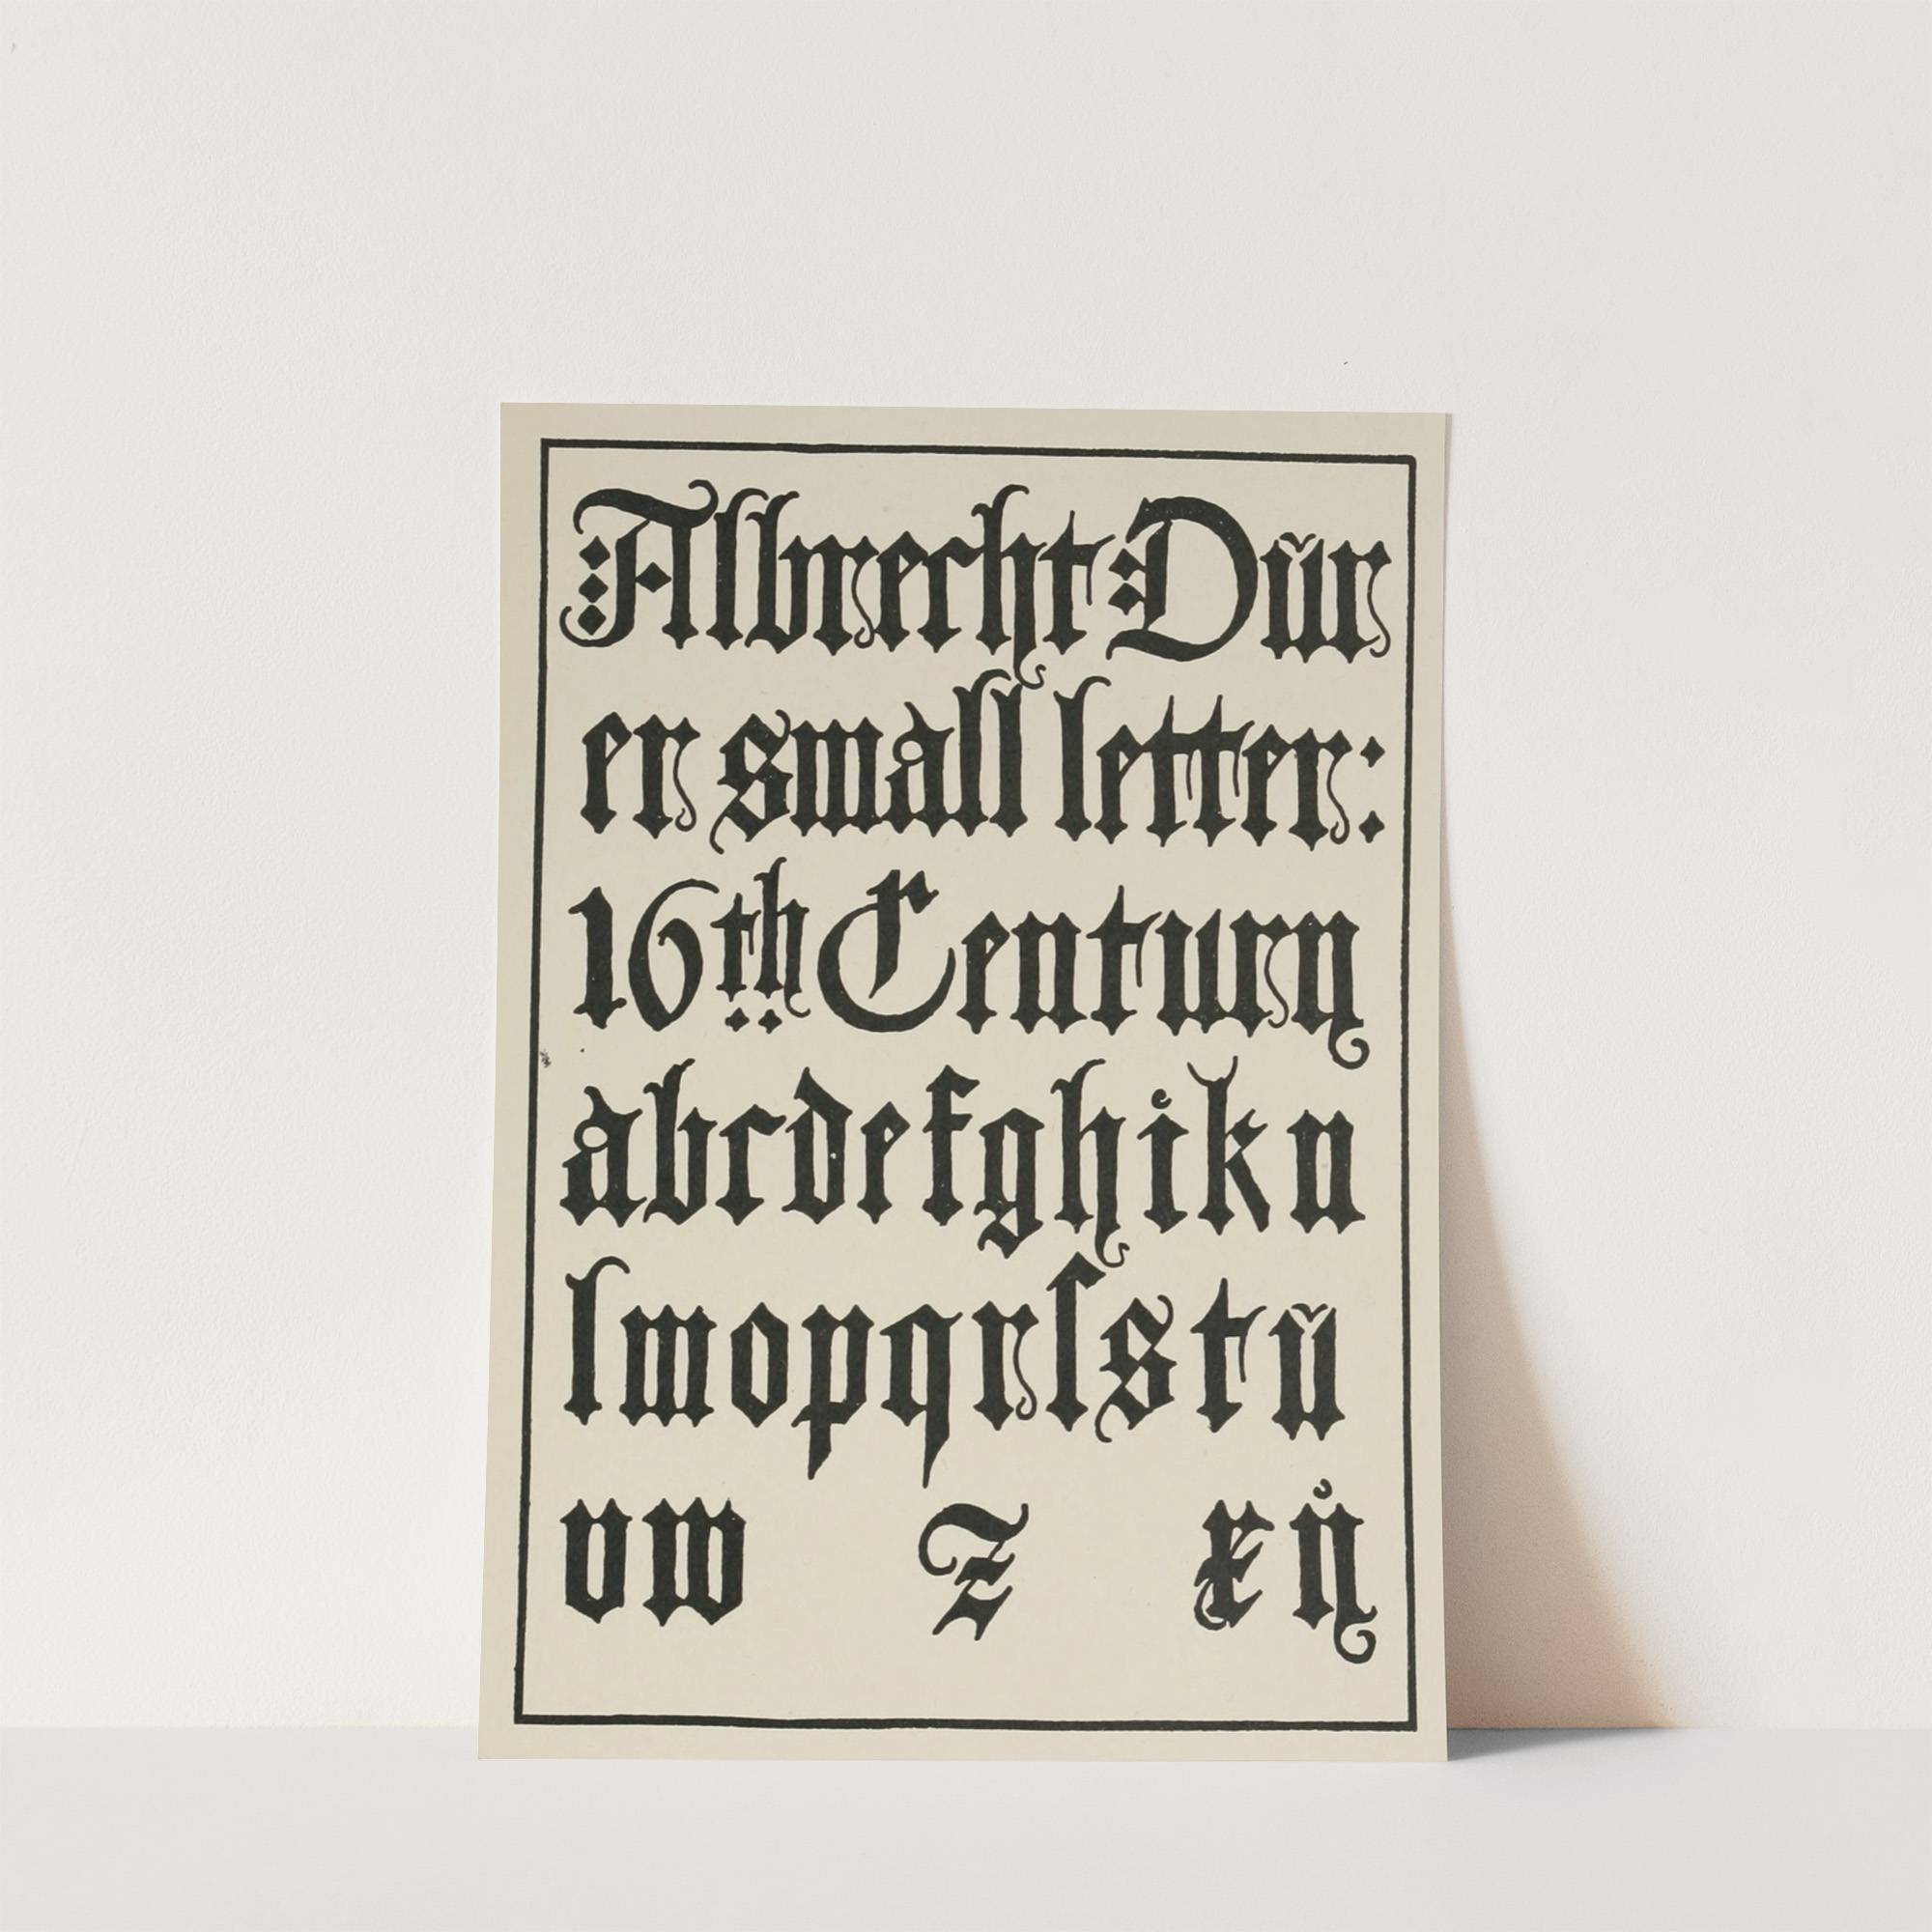 Albrecht Dür
er small letter:
16th Century
abcdefghikn
lmopqrſstŭ
vw z xẏ